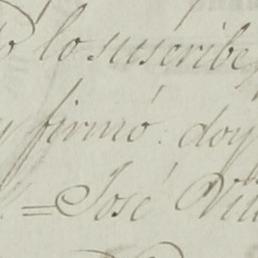 lo suscribe
y firmó. doy
= José